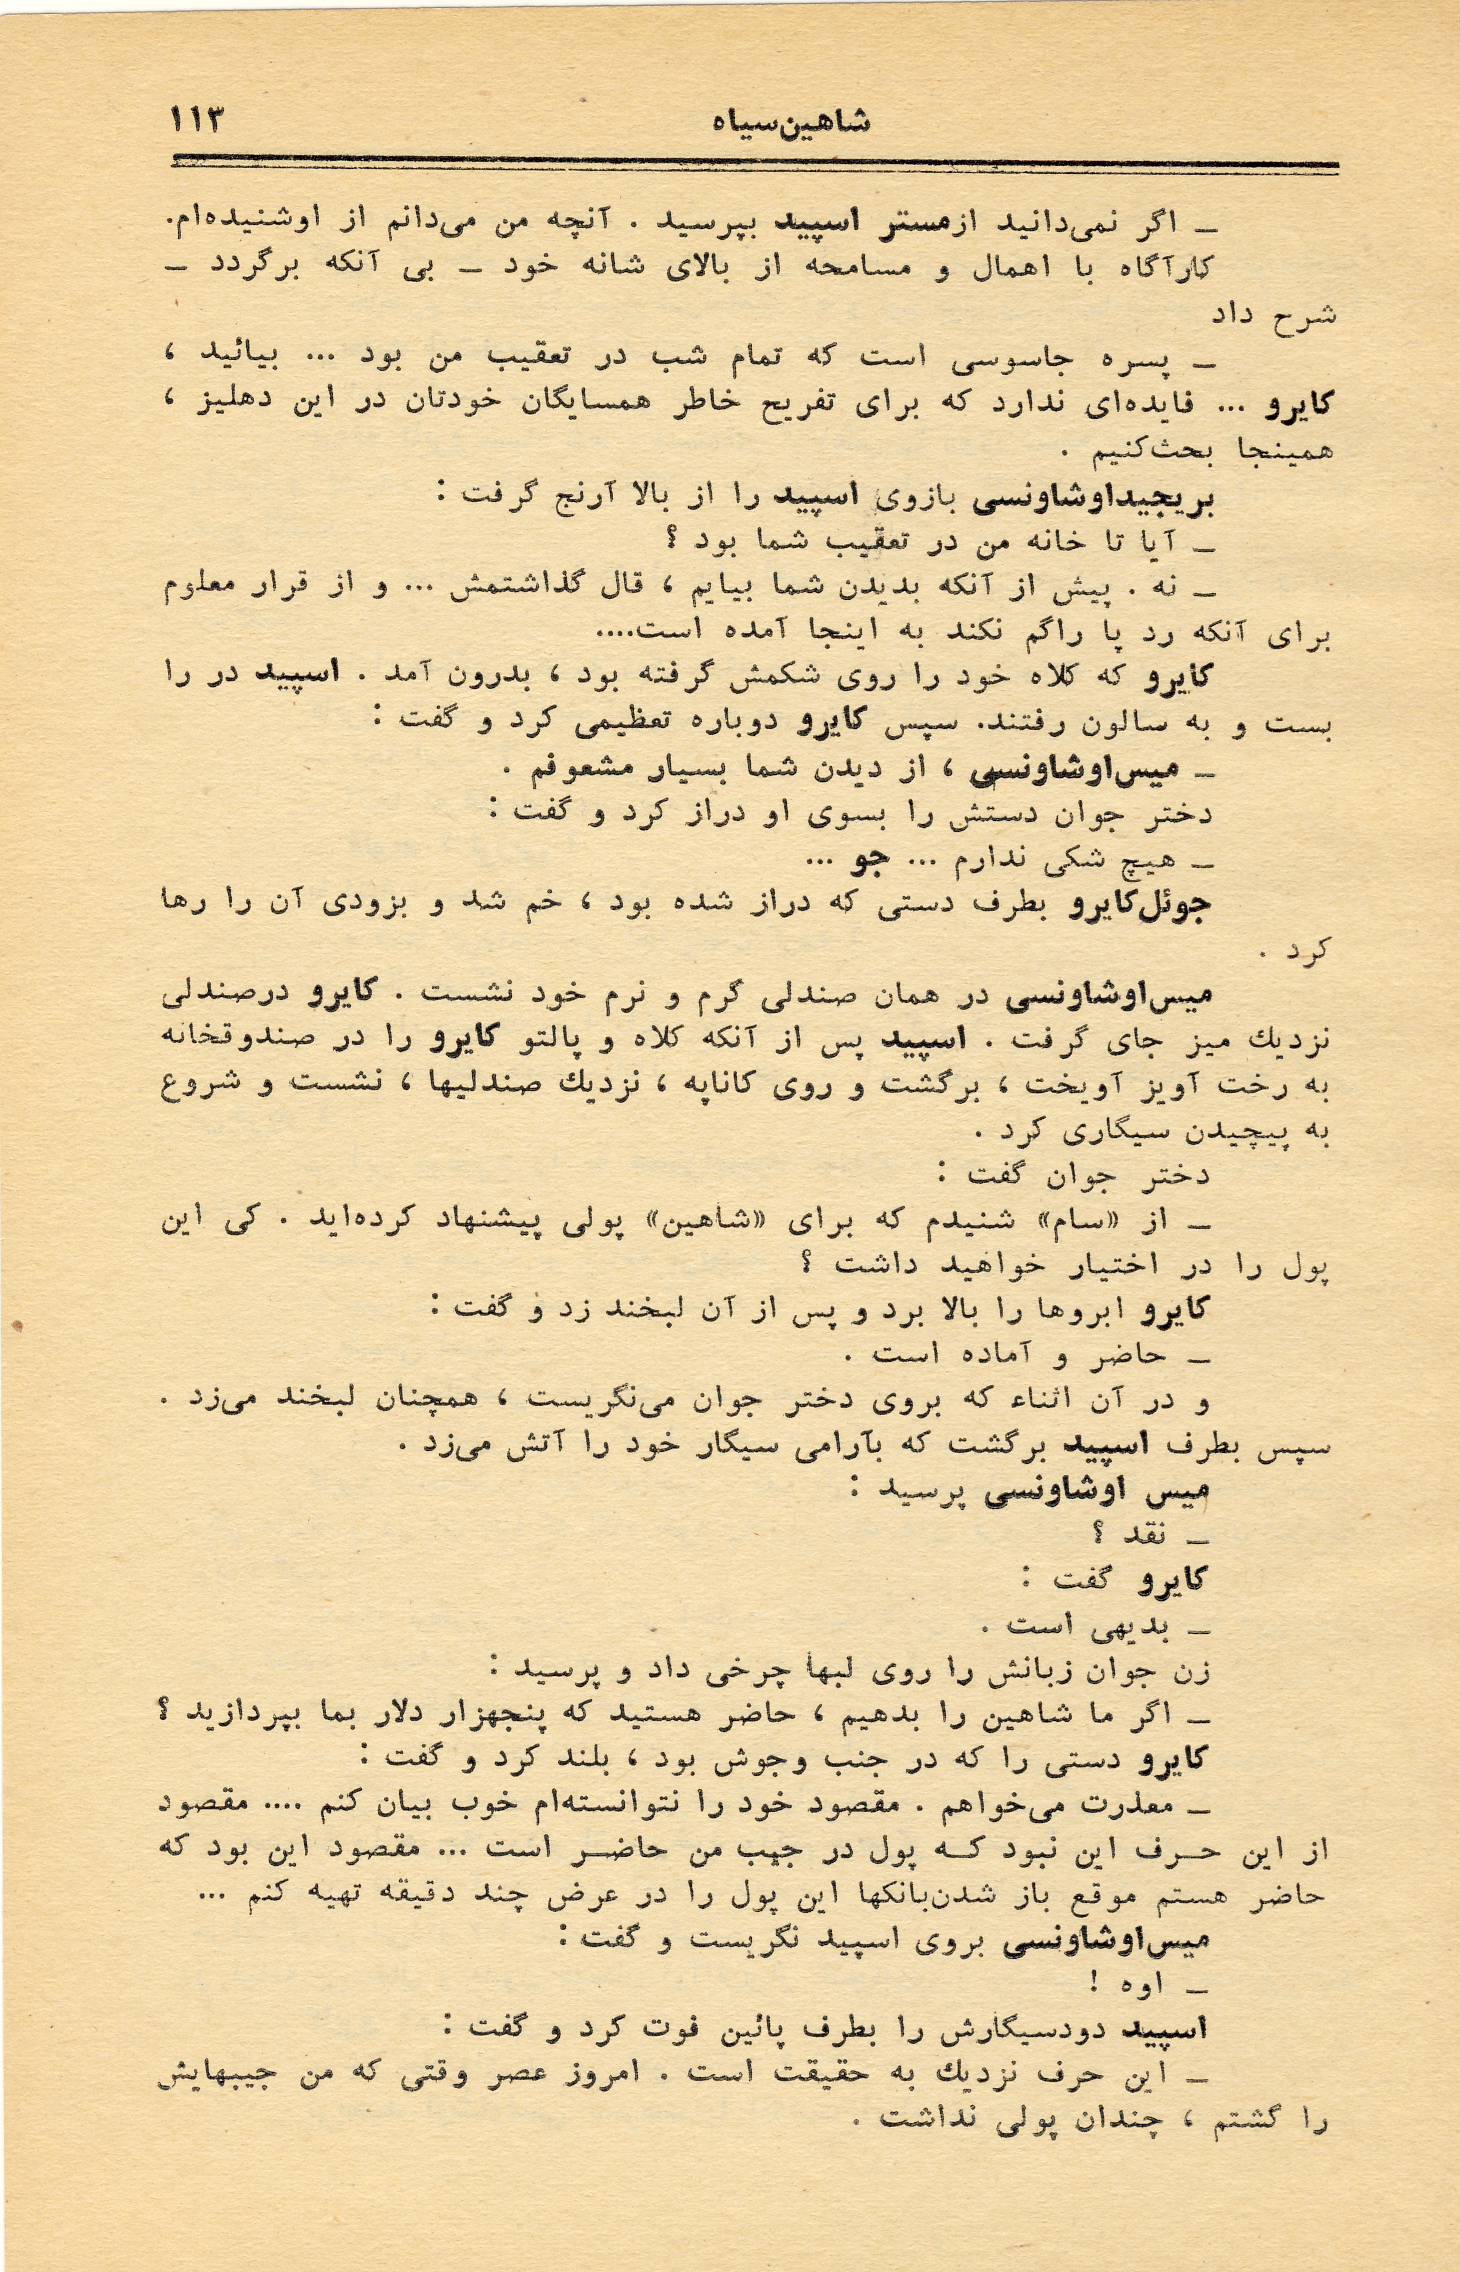 شاهین‌سیاه
۱۱۳
ــ اگر نمی‌دانید ازمستر اسپید بپرسید . آنچه من می‌دانم از اوشنیده‌ام.
کارآگاه با اهمال و مسامحه از بالای شانه خود ــ بی آنکه برگردد ــ
شرح داد
ــ پسره جاسوسی است که تمام شب در تعقیب من بود ... بیائید ،
کایرو ... فایده‌ای ندارد که برای تفریح خاطر همسایگان خودتان در این دهلیز ،
همینجا بحث‌کنیم .
بریجیداوشاونسی بازوی اسپید را از بالا آرنج گرفت :
ــ آیا تا خانه من در تعقیب شما بود ؟
ــ نه . پیش از آنکه بدیدن شما بیایم ، قال گذاشتمش ... و از قرار معلوم
برای آنکه رد پا راگم نکند به اینجا آمده است....
کایرو که کلاه خود را روی شکمش گرفته بود ، بدرون آمد . اسپید در را
بست و به سالون رفتند. سپس کایرو دوباره تعظیمی کرد و گفت :
ــ میس‌اوشاونسی ، از دیدن شما بسیار مشعوفم .
دختر جوان دستش را بسوی او دراز کرد و گفت :
ــ هیچ شکی ندارم ... جو ...
جوئل‌کایرو بطرف دستی که دراز شده بود ، خم شد و بزودی آن را رها
کرد .
میس‌اوشاونسی در همان صندلی گرم و نرم خود نشست . کایرو درصندلی
نزدیك میز جای گرفت . اسپید پس از آنکه کلاه و پالتو کایرو را در صندوقخانه
به رخت آویز آویخت ، برگشت و روی کاناپه ، نزدیك صندلیها ، نشست و شروع
به پیچیدن سیگاری کرد .
دختر جوان گفت :
ــ از «سام» شنیدم که برای «شاهین» پولی پیشنهاد کرده‌اید . کی این
پول را در اختیار خواهید داشت ؟
کایرو ابروها را بالا برد و پس از آن لبخند زد و گفت :
ــ حاضر و آماده است .
و در آن اثناء که بروی دختر جوان می‌نگریست ، همچنان لبخند می‌زد .
سپس بطرف اسپید برگشت که بآرامی سیگار خود را آتش می‌زد .
میس اوشاونسی پرسید :
ــ نقد ؟
کایرو گفت :
ــ بدیهی است .
زن جوان زبانش را روی لبها چرخی داد و پرسید :
ــ اگر ما شاهین را بدهیم ، حاضر هستید که پنجهزار دلار بما بپردازید ؟
کایرو دستی را که در جنب وجوش بود ، بلند کرد و گفت :
ــ معذرت می‌خواهم . مقصود خود را نتوانسته‌ام خوب بیان کنم .... مقصود
از این حرف این نبود که پول در جیب من حاضر است ... مقصود این بود که
حاضر هستم موقع باز شدن‌بانکها این پول را در عرض چند دقیقه تهیه کنم ...
میس‌اوشاونسی بروی اسپید نگریست و گفت :
ــ اوه !
اسپید دودسیگارش را بطرف پائین فوت کرد و گفت :
ــ این حرف نزدیك به حقیقت است . امروز عصر وقتی که من جیبهایش
را گشتم ، چندان پولی نداشت .